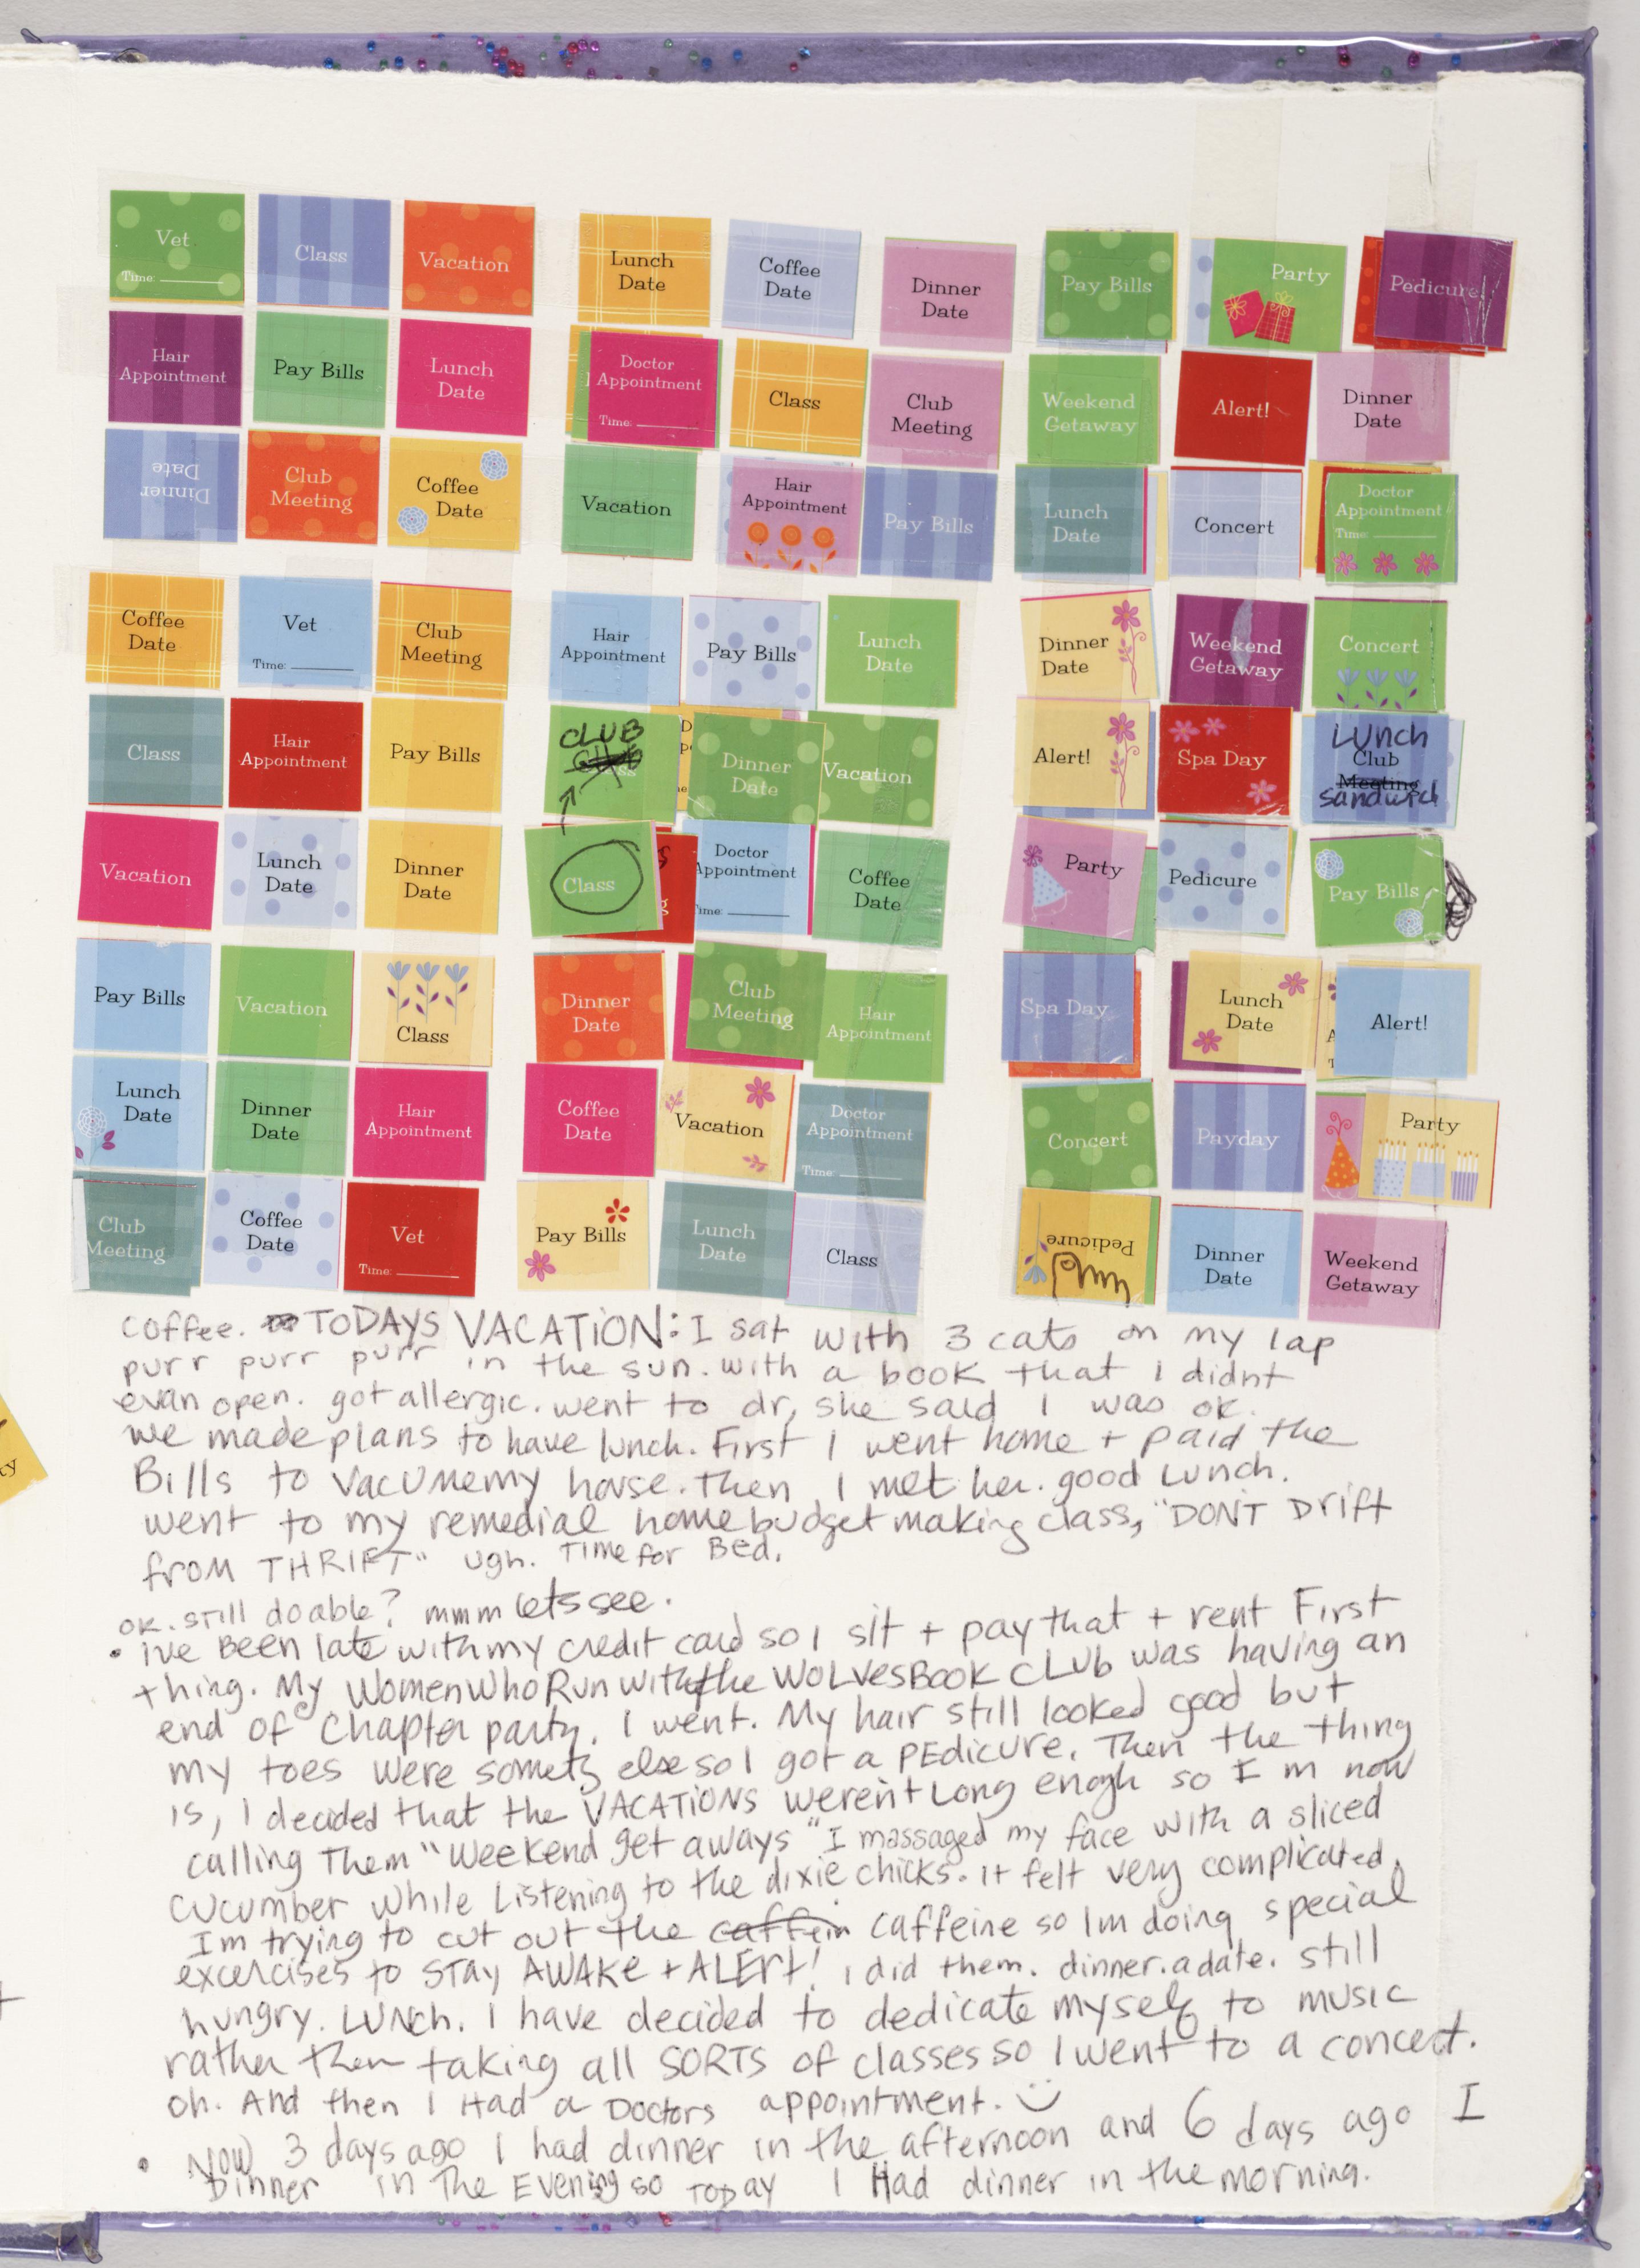 Vet Class Vacation Lunch Date Coffee Date Dinner Date Pay Bills Party Pedicure
Time:
Hair Appointment Pay Bills Lunch Date Doctor Appointment Class Club Meeting Weekend Getaway Alert! Dinner Date
Time:
Dinner Date Club Meeting Coffee Date Vacation Hair Appointment Pay Bills Lunch Date Concert Doctor Appointment
Time:
Coffee Date Vet Club Meeting Hair Appointment Pay Bills Lunch Date Dinner Date Weekend Getaway Concert
Time:
Class Hair Appointment Pay Bills CLUB Dinner Date Vacation Alert! Spa Day LUNCH Club Meeting sandwich
Vacation Lunch Date Dinner Date Class Doctor Appointment Coffee Date Party Pedicure Pay Bills
Time:
Pay Bills Vacation Class Dinner Date Club Meeting Hair Appointment Spa Day Lunch Date Alert!
Lunch Date Dinner Date Hair Appointment Coffee Date Vacation Doctor Appointment Concert Payday Party
Time:
Club Meeting Coffee Date Vet Pay Bills Lunch Date Class Pedicure Dinner Date Weekend Getaway
Time:
coffee. TODAYS VACATION: I sat with 3 cats on my lap
purr purr purr in the sun. with a book that I didnt
evan open. got allergic. went to dr, she said I was ok.
we made plans to have lunch. First I went home + paid the
Bills to vacumemy house. then I met her. good Lunch.
went to my remedial home budget making class, "DON'T Drift
from THRIFT" ugh. Time for Bed.
ok. still doable? mmm lets see.
• ive Been late with my credit card so I sit + pay that + rent First
thing. My WomenWhoRunwiththe WOLVESBOOK CLUb was having an
end of Chapter party. I went. My hair still looked good but
my toes were else so I got a PEdicURE. Then the thing
is, I decided that the VACATIONS weren't Long enogh so I m now
calling Them "Weekend get aways" I massaged my face with a sliced
cucumber while Listening to the dixie chicks. it felt very complicated.
Im trying to cut out the caffein caffeine so Im doing special
excercises to STay AWAKE + ALERT! I did them. dinner. a date. still
hungry. LUNch. I have decided to dedicate myself to music
rather then taking all SORTS of classes so I went to a concert.
oh. And then I Had a Doctors appointment. ☺
• NOW 3 days ago I had dinner in the afternoon and 6 days ago I
Dinner in The Evening so TODAY I Had dinner in the morning.